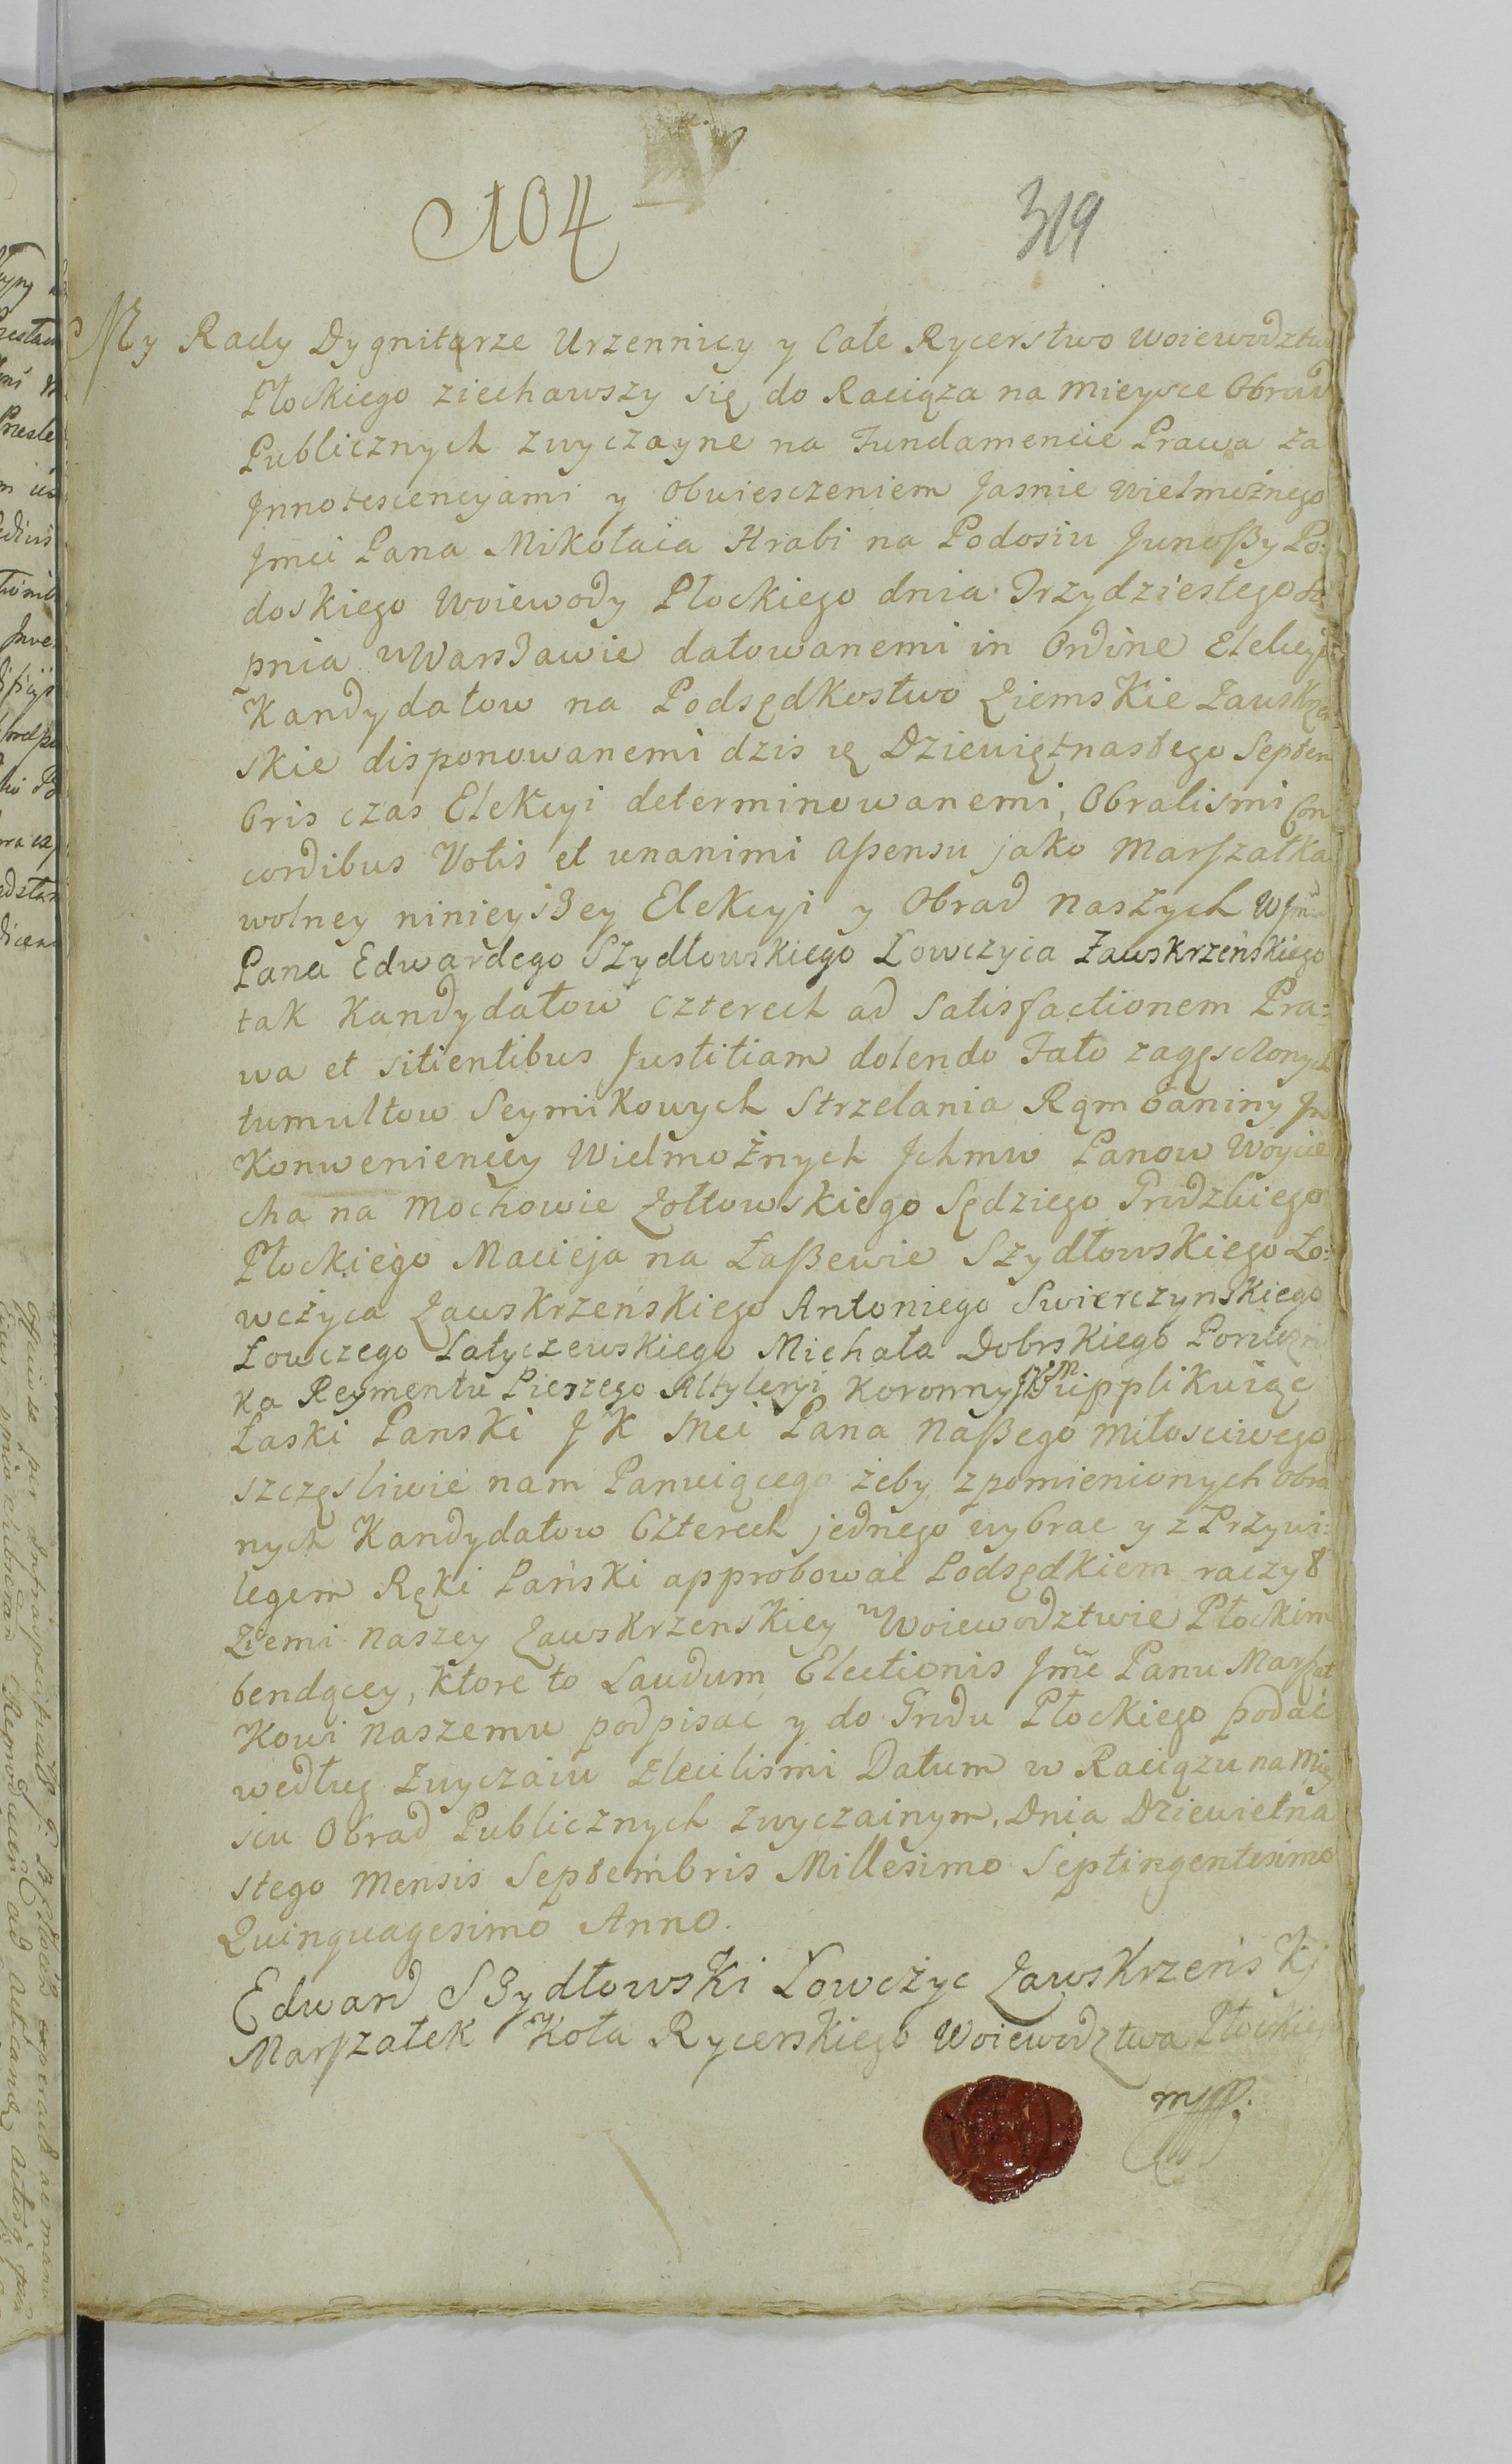 104
319
My Rady Dygnitarze Urzennicy y Całe Rycerstwo Woiewodztwa
Płockiego ziechawszy się do Raciąza na mieysce Obrad
Publicznych zwyczayne na Fundamencie Prawa za
Jnnotescencyami y Obwiesczeniem Jasnie Wielmożnego
Jmci Pana Mikołaia Hrabi na Podosiu Junoszy Po:
doskiego Woiewody Płockiego dnia Trzydziestego
pnia w Warszawie datowanemi in Ordine Elekcyi
Kandydatow na Podsędkostwo Ziemskie Zawskrzen
skie disponowanemi dzis ię Dziewiętnastego Septem
bris czas Elekcyi determinowanemi, Obralismi Con
cordibus Votis et unanimi assensu jako Marszałka
wolney ninieyszey Elekcyi y Obrad naszych WJmci
Pana Edwardego Szydłowskiego Łowczyca Zawskrzeńskiego
tak Kandydatow czterech ad satisfactionem Pra:
wa et sitientibus Justitiam dolendo Fato zagęsclonych
tumultow Seymikowych Strzelania Rąmbaniny Jn
Konweniencyy Wielmożnych Jchmw Panow Woycie
cha na Mochowie Zołtowskiego Sędziego Grodzkiego
Płockiego Macieja na Łaszewie Szydłowskiego Ło:
wczyca Zawskrzeńskiego Antoniego Swierczynskiego
Łowczego Latyczewskiego Michała Dobrskiego Poruczni
ka Reymentu Pieszego Altyleryi Koronny Supplikuiąc
Łaski Panski J K Mci Pana Naszego miłosciwego
szczęsliwie nam Panuiącego żeby z pomienionych obra
nych Kandydatow Czterech jednego wybrac y z Przywi:
legem Ręki Pański approbować Podsędkiem raczył
Ziemi naszey Zawskrzenskiey w Woiewodztwie Płockim
bendącey, Ktore to Laudum Electionis Jmc Panu Marszał
Kowi naszemu podpisać y do Grodu Płockiego podać
według zwyczaiu zlecilismi Datum w Raciązu na Miey
scu Obrad Publicznych zwyczainym. Dnia Dziewietna
stego Mensis Septembris Millesimo Septingentesimo
Quinquagesimo Anno.
Edward Szydłowski Łowczyc Zawskrzeńskj
Marszałek Koła Rycerskiego Woiewodztwa Płockiego
mpp.